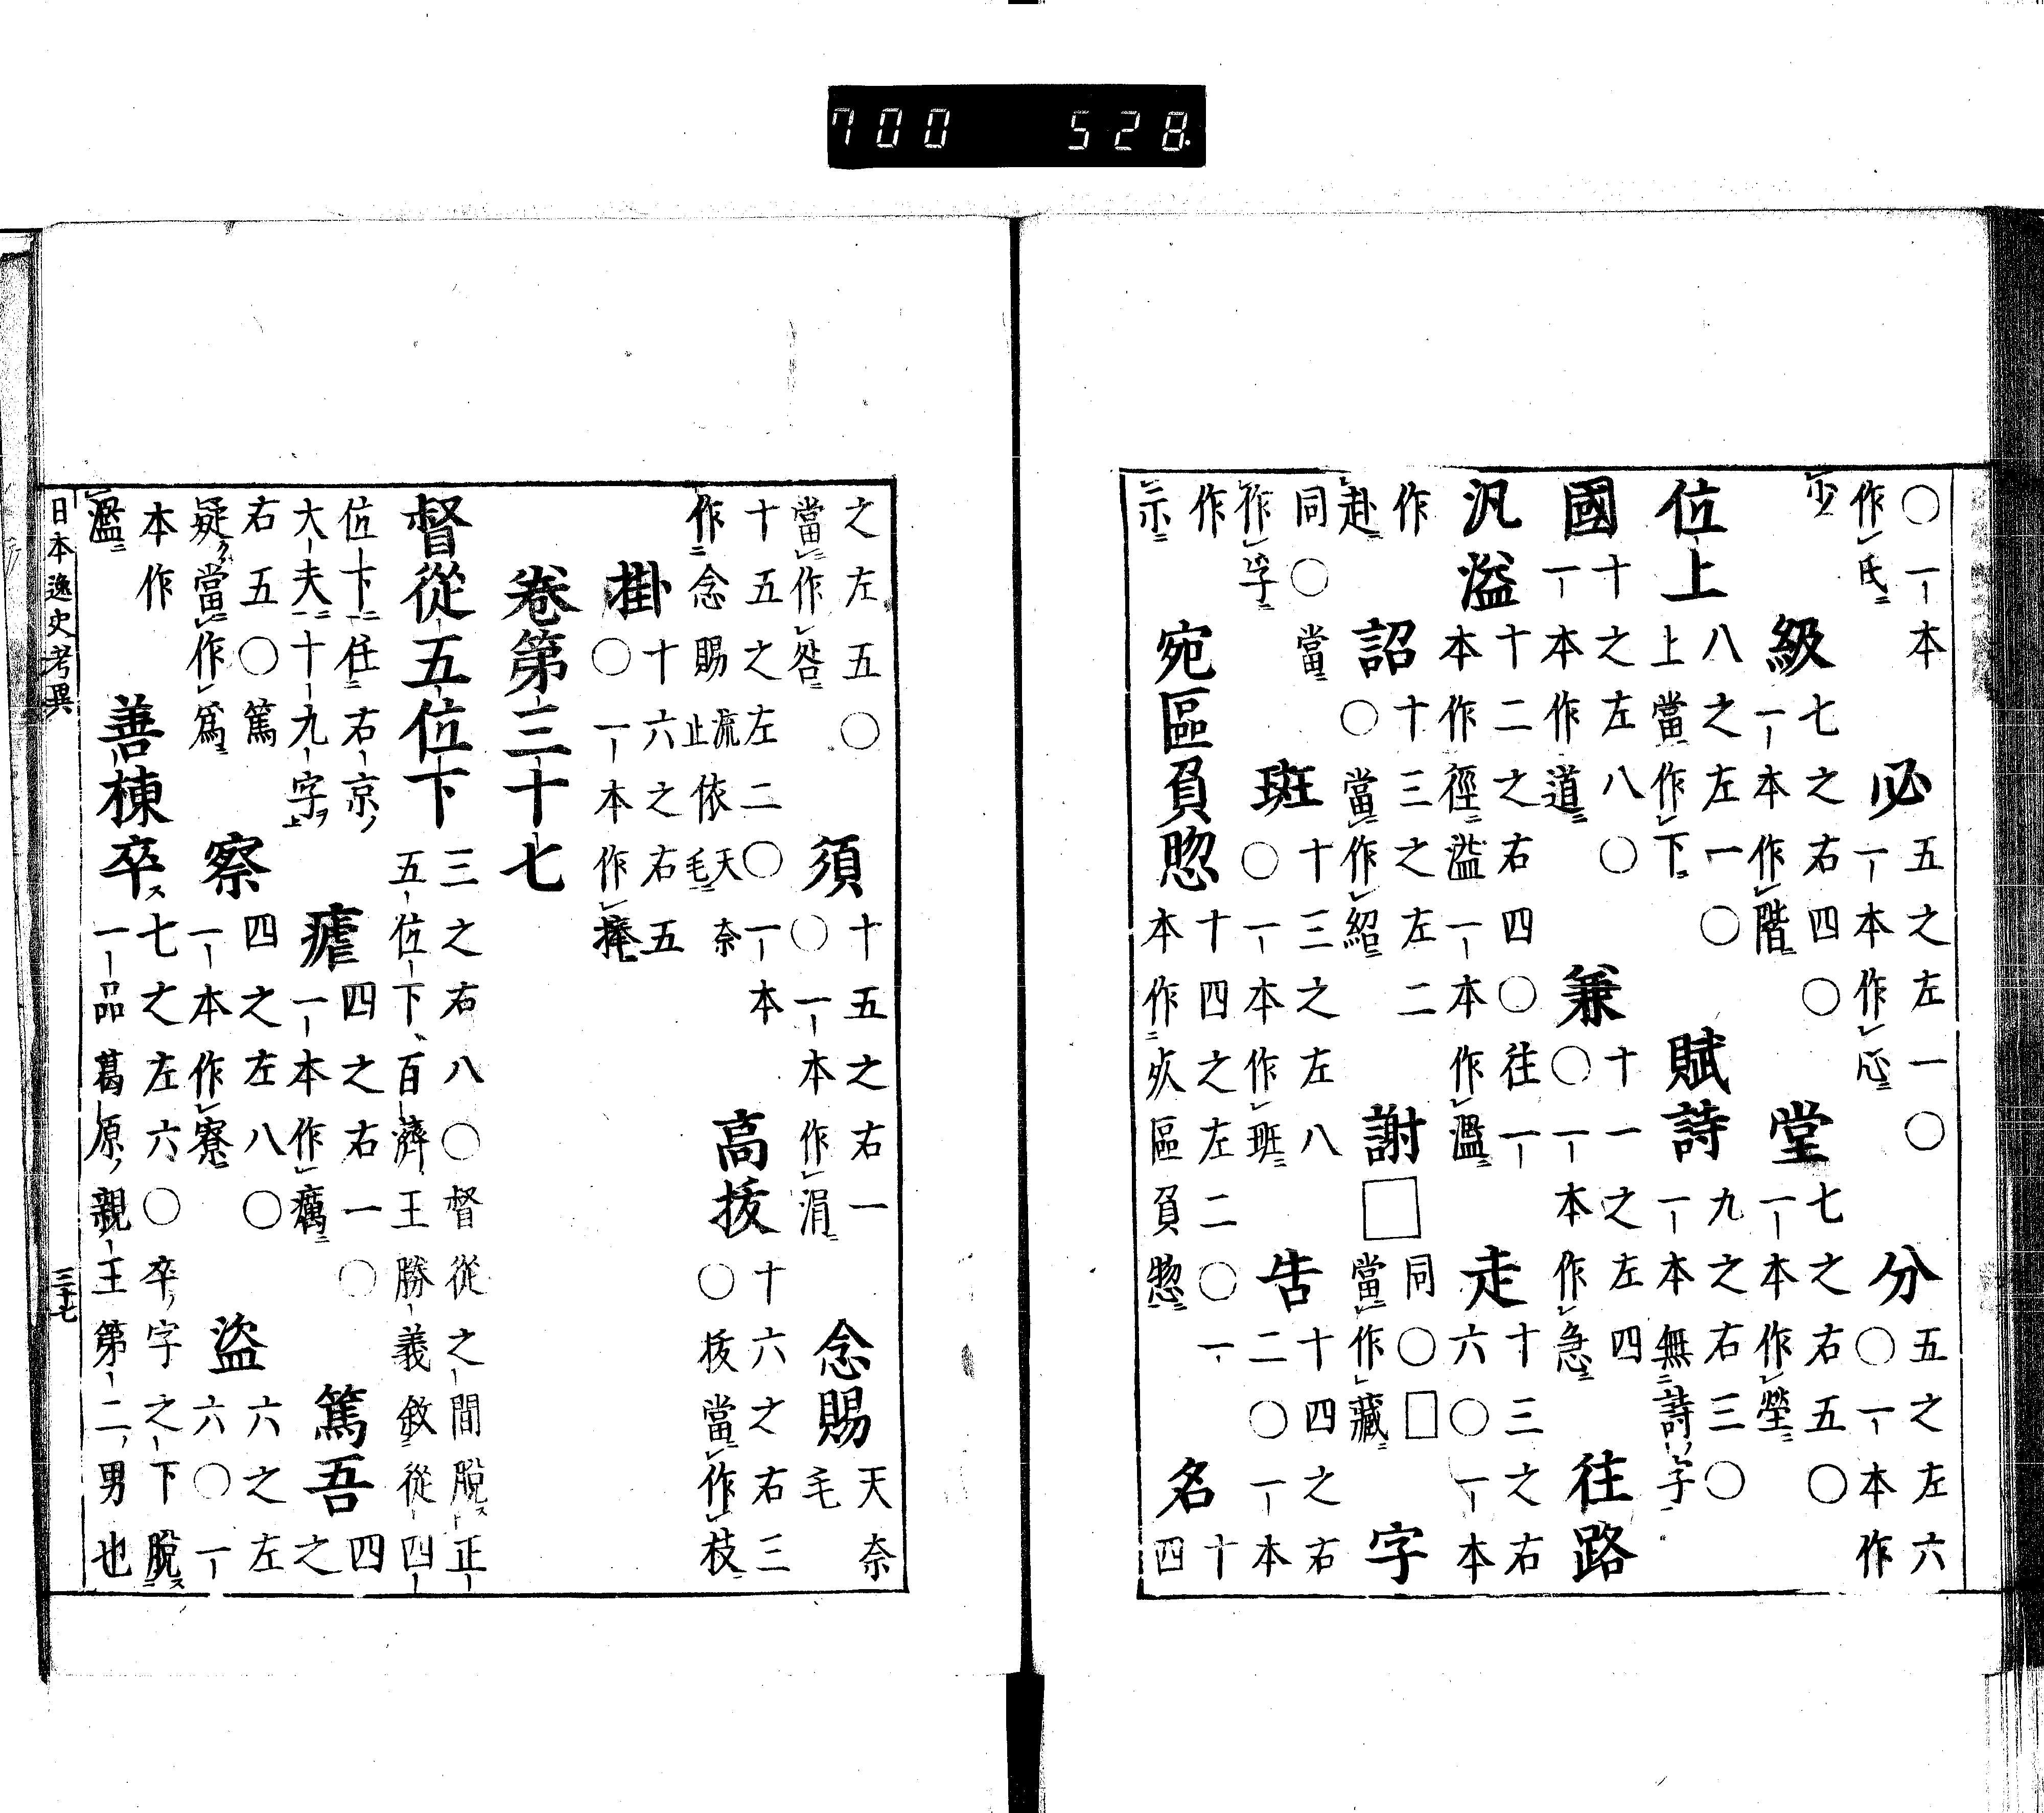 700 528
○一本作氏 必五之左一○一本作心 分五之左六○一本作
少 級七之右四○一本作階 堂七之右五○一本作塋
位上八之左一○上當作下 賦詩九之右三○一本無詩字
國十之左八○一本作道 兼十一之左四○一本作急 往路
汎溢十二之右四○往一本作徑溢一本作濫 走十三之右六○一本
作赴 詔十三之左二○當作紹 謝□同○□當作藏 字
同○當作字 班十三之左八○一本作班 告十四之右二○一本
作示 宛區負惣十四之左二○一本作宍區負惣 名十四
之左五○當作咎 須十五之右一○一本作涓 念賜天奈毛
十五之左二○一本作念賜流止依天毛奈 高抜十六之右三○抜當作枝
掛十六之右五○一本作捧
卷第三十七
督從五位下三之右八○督從之間脫正五位下百濟王勝義敘從四
位下任右京大夫十九字 瘧四之右一○一本作癘 篤吾四之
右五○篤疑當作爲 察四之左八○一本作寮 盜六之左六○一
本作濫 善棟卒七之左六○卒字之下脫一品葛原親王第二男也
日本逸史考異 三十七